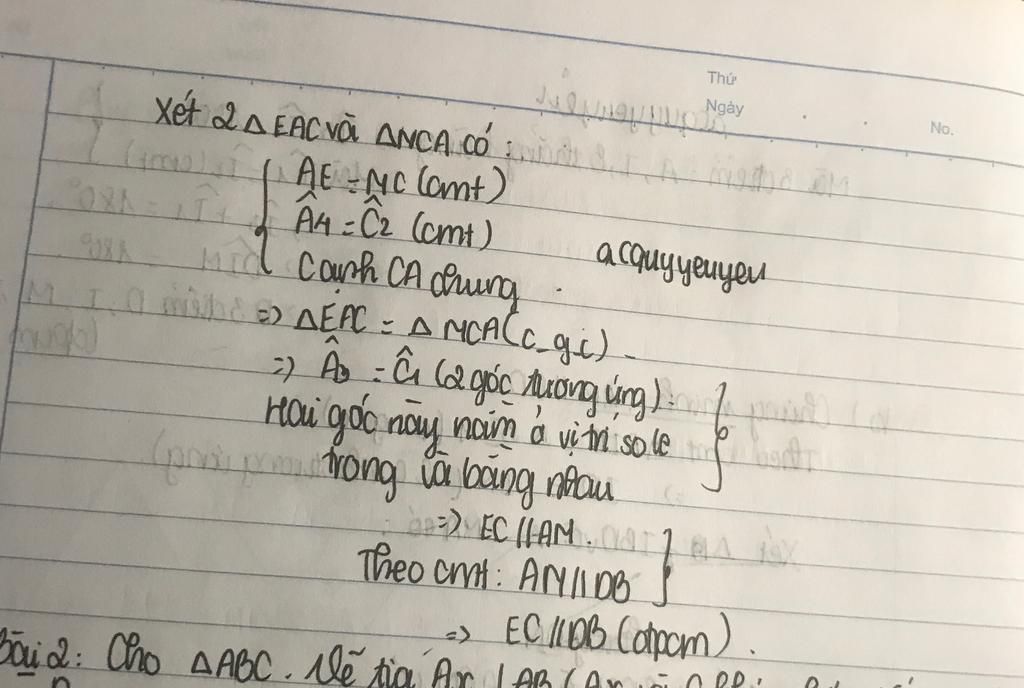 Thứ
Ngày
No.
Xét 2 Δ EAC và ΔMCA có :
AE = MC (cmt)
Â4 = Ĉ2 (cmt)
Cạnh CA chung
acquyyeuyeu
=> ΔEAC = Δ MCA (c_g_c)
=> Â3 = Ĉ1 (2 góc tương ứng).
Hai góc này nằm ở vị trí so le
trong và bằng nhau
=> EC // AM.
Theo cmt: AM // DB
=> EC // DB (đpcm).
Bài 2: Cho ΔABC. Vẽ tia Ax ⊥ AB (Ax và